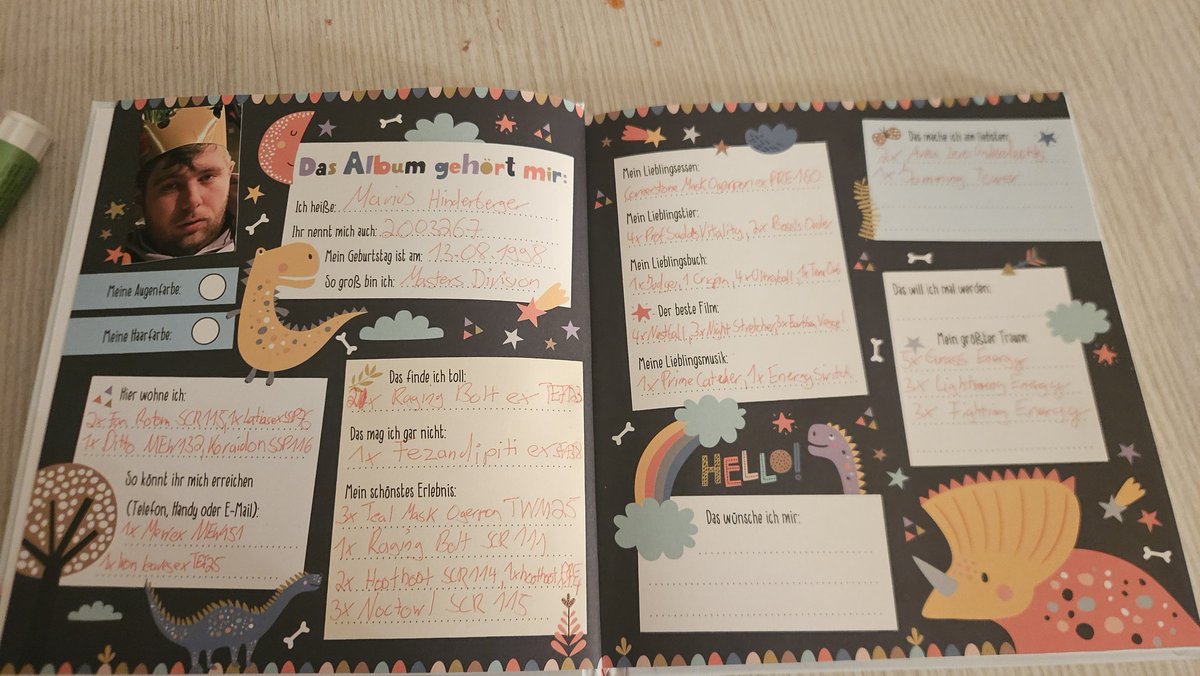 Das Album gehört mir:
Ich heiße: Marius Hinderberger
Ihr nennt mich auch: 2003267
Mein Geburtstag ist am: 13.08.1998
So groß bin ich: Masters Division
Meine Augenfarbe:
Meine Haarfarbe:
Hier wohne ich:
2x Fan Rotom SCR 115, 1x Latias ex SSP 76
1x Ditto MEW132, Koraidon SSP 116
So könnt ihr mich erreichen
(Telefon, Handy oder E-Mail):
1x Mew ex MEW151
1x Iron Leaves ex TEF25
Das finde ich toll:
x Raging Bolt ex TEF123
Das mag ich gar nicht:
1x fezandipiti ex
Mein schönstes Erlebnis:
3x Teal Mask Ogerpon TWM25
1x Raging Bolt SCR 111
2x Hoothoot SCR 114, 1x hoothoot PRE
3x Noctowl SCR 115
Mein Lieblingsessen:
Cornerstone Mask Ogerpon ex PRE 160
Mein Lieblingstier:
4x Prof. Sada's Vitality, 2x Boss's Order
Mein Lieblingsbuch:
1x, 1x Crispin, 4x Ultraball, 1x
Der beste Film:
4x Nestball, 3x Night Stretcher, 3x Earthen Vessel
Meine Lieblingsmusik:
1x Prime Catcher, 1x Energy Switch
HELLO!
Das wünsche ich mir:
Das mache ich am liebsten:
Area Zero Underdepths
1x Jamming Tower
Das will ich mal werden:
Mein größter Traum:
5x Grass Energy
3x Lightning Energy
3x Fighting Energy